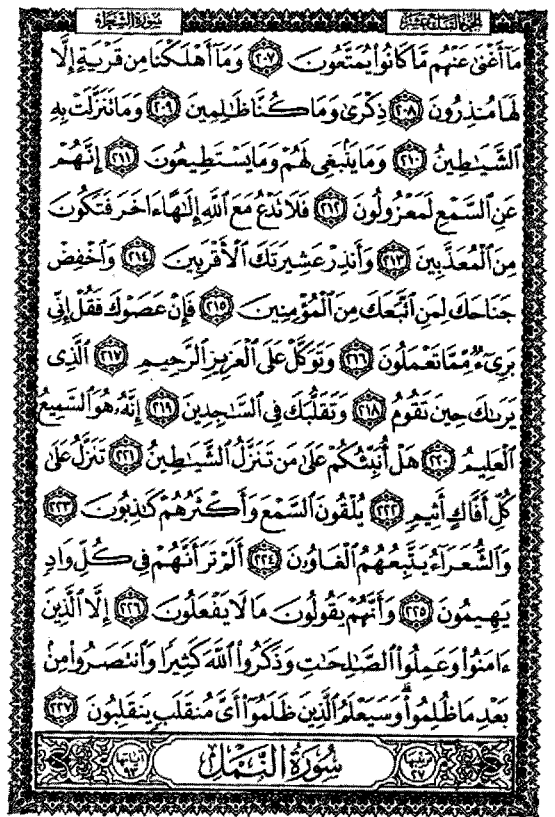 الجزء التاسع عشر سُورَةُ الشُّعَرَاءِ
مَآ أَغْنَىٰ عَنْهُم مَّا كَانُوا۟ يُمَتَّعُونَ ٢٠٧ وَمَآ أَهْلَكْنَا مِن قَرْيَةٍ إِلَّا
لَهَا مُنذِرُونَ ٢٠٨ ذِكْرَىٰ وَمَا كُنَّا ظَٰلِمِينَ ٢٠٩ وَمَا تَنَزَّلَتْ بِهِ
ٱلشَّيَٰطِينُ ٢١٠ وَمَا يَنۢبَغِى لَهُمْ وَمَا يَسْتَطِيعُونَ ٢١١ إِنَّهُمْ
عَنِ ٱلسَّمْعِ لَمَعْزُولُونَ ٢١٢ فَلَا تَدْعُ مَعَ ٱللَّهِ إِلَٰهًا ءَاخَرَ فَتَكُونَ
مِنَ ٱلْمُعَذَّبِينَ ٢١٣ وَأَنذِرْ عَشِيرَتَكَ ٱلْأَقْرَبِينَ ٢١٤ وَٱخْفِضْ
جَنَاحَكَ لِمَنِ ٱتَّبَعَكَ مِنَ ٱلْمُؤْمِنِينَ ٢١٥ فَإِنْ عَصَوْكَ فَقُلْ إِنِّى
بَرِىٓءٌ مِّمَّا تَعْمَلُونَ ٢١٦ وَتَوَكَّلْ عَلَى ٱلْعَزِيزِ ٱلرَّحِيمِ ٢١٧ ٱلَّذِى
يَرَىٰكَ حِينَ تَقُومُ ٢١٨ وَتَقَلُّبَكَ فِى ٱلسَّٰجِدِينَ ٢١٩ إِنَّهُۥ هُوَ ٱلسَّمِيعُ
ٱلْعَلِيمُ ٢٢٠ هَلْ أُنَبِّئُكُمْ عَلَىٰ مَن تَنَزَّلُ ٱلشَّيَٰطِينُ ٢٢١ تَنَزَّلُ عَلَىٰ
كُلِّ أَفَّاكٍ أَثِيمٍ ٢٢٢ يُلْقُونَ ٱلسَّمْعَ وَأَكْثَرُهُمْ كَٰذِبُونَ ٢٢٣
وَٱلشُّعَرَآءُ يَتَّبِعُهُمُ ٱلْغَاوُۥنَ ٢٢٤ أَلَمْ تَرَ أَنَّهُمْ فِى كُلِّ وَادٍ
يَهِيمُونَ ٢٢٥ وَأَنَّهُمْ يَقُولُونَ مَا لَا يَفْعَلُونَ ٢٢٦ إِلَّا ٱلَّذِينَ
ءَامَنُوا۟ وَعَمِلُوا۟ ٱلصَّٰلِحَٰتِ وَذَكَرُوا۟ ٱللَّهَ كَثِيرًا وَٱنتَصَرُوا۟ مِنۢ
بَعْدِ مَا ظُلِمُوا۟ ۗ وَسَيَعْلَمُ ٱلَّذِينَ ظَلَمُوٓا۟ أَىَّ مُنقَلَبٍ يَنقَلِبُونَ ٢٢٧
ترتيبها ٢٧ سُورَةُ النَّمْلِ آياتها ٩٣